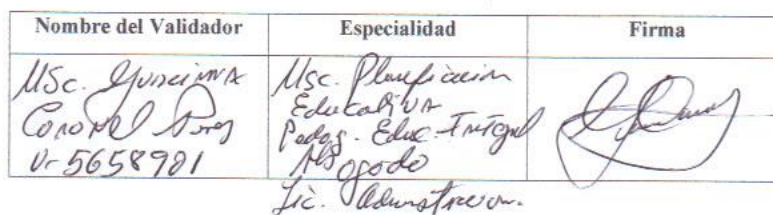 Nombre del Validador Especialidad Firma
MSc.
Coronel
V-5658901
Msc. Planificación
Educativa
Pedag. Educ. Integral
Abogado
Lic. Admistracion.